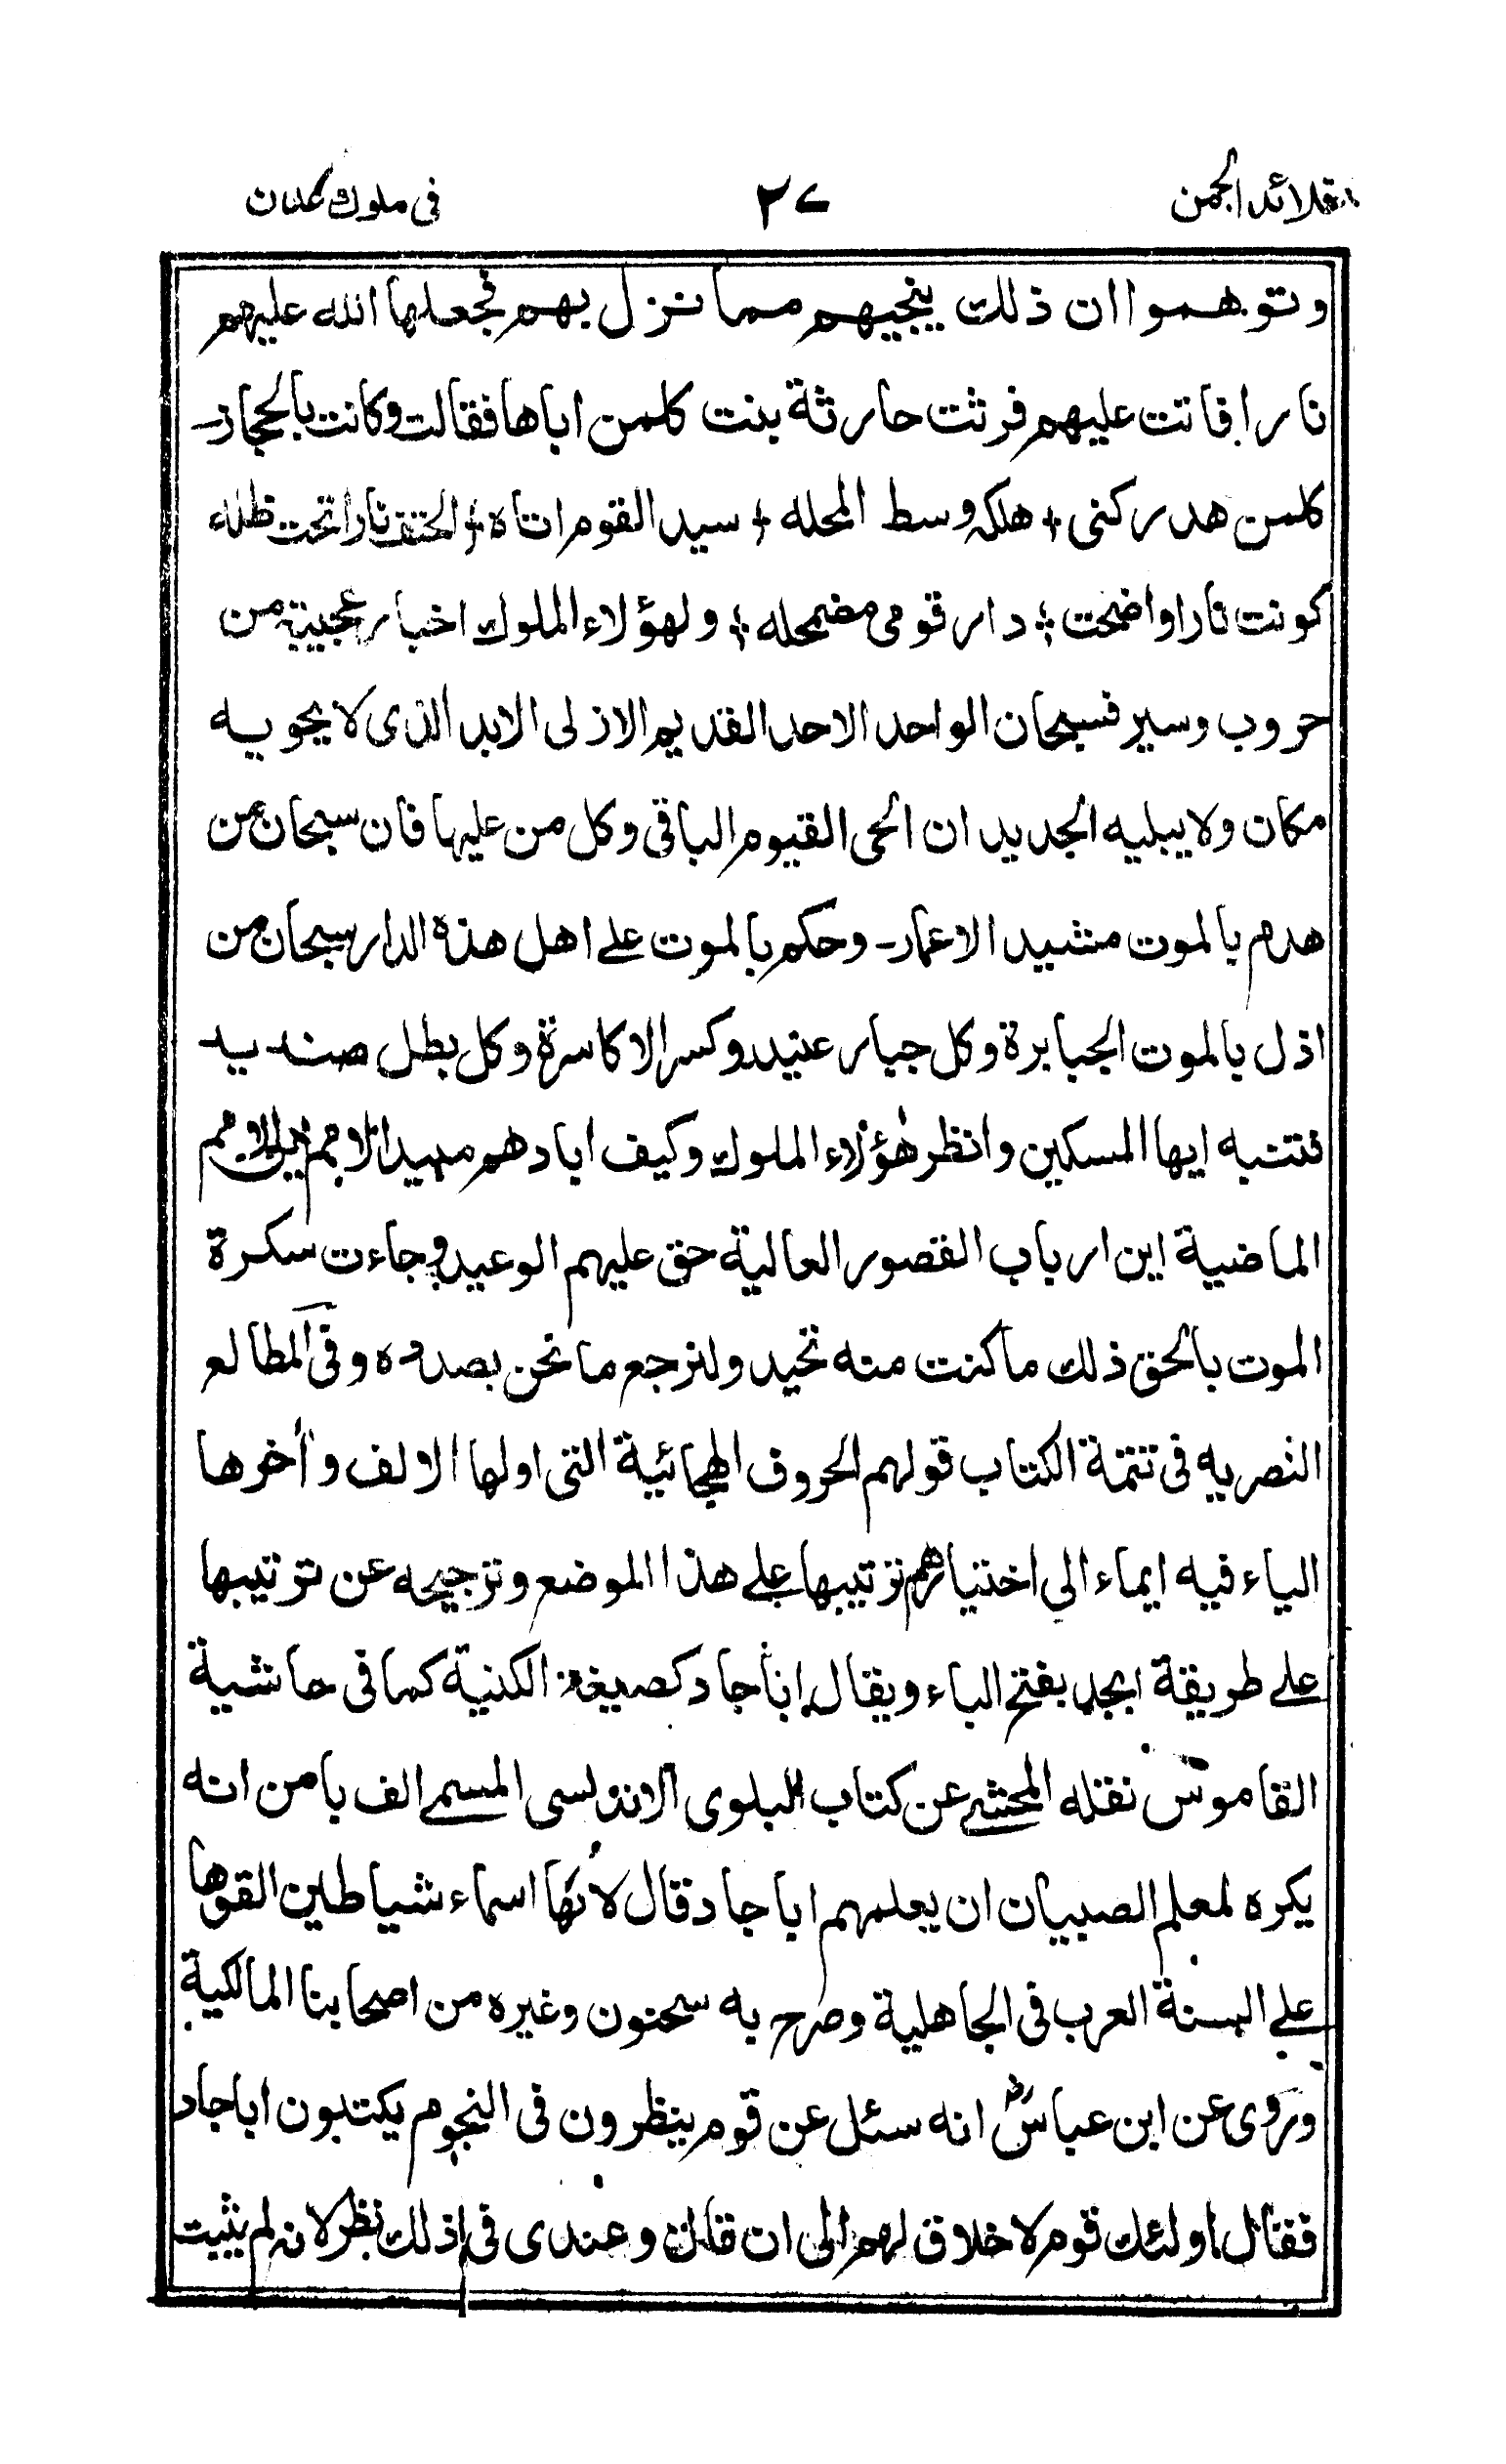 قلائد الجمن ٢٧ فى ملوك عدن
وتوهموا ان ذلك ينجيهم مما نزل بهم فجعلها الله عليهم
نارا فاتت عليهم فرثت حارثة بنت كلمن اباها فقالت وكانت بالحجاز
كلمن هدركنى + هلكه وسط المحله + سيد القوم اتاه + الحتف نارا تحت ظله
كونت نارا واضحت + دار قومى مضمحله + ولهؤلاء الملوك اخبار عجيبة من
حروب وسير فسبحان الواحد الاحد القديم الازلى الابد الذى لا يحويه
مكان ولا يبليه الجديدان الحى القيوم الباقى وكل من عليها فان سبحان من
هدم بالموت مشيد الاعمار وحكم بالموت على اهل هذه الدار سبحان من
اذل بالموت الجبابرة وكل جبار عنيد وكسر الاكاسرة وكل بطل صنديد
فتنبه ايها المسكين وانظر هؤلاء الملوك وكيف ابادهم مبيد الامم اين الامم
الماضية اين ارباب القصور العالية حق عليهم الوعيد وجاءت سكرة
الموت بالحق ذلك ما كنت منه تحيد ولنرجع ما نحن بصدده وفى المطالع
النصريه فى تتمة الكتاب قولهم الحروف الهجائية التى اولها الالف وأخرها
الياء فيه ايماء الى اختيارهم ترتيبها على هذا الموضع وترجيحه عن ترتيبها
على طريقة ابجد بفتح الباء ويقال اباجاد كصيغة الكنية كما فى حاشية
القاموس نقله المحشى عن كتاب البلوى الاندلسى المسمى الف با من انه
يكره لمعلم الصبيان ان يعلمهم اباجاد قال لانها اسماء شياطين القوها
على السنة العرب فى الجاهلية وصرح به سحنون وغيره من اصحابنا المالكية
وروى عن ابن عباسؓ انه سئل عن قوم ينظرون فى النجوم يكتبون اباجاد
فقال اولئك قوم لا خلاق لهم الى ان قال وعندى فى ذلك نظر لانه لم يثبت